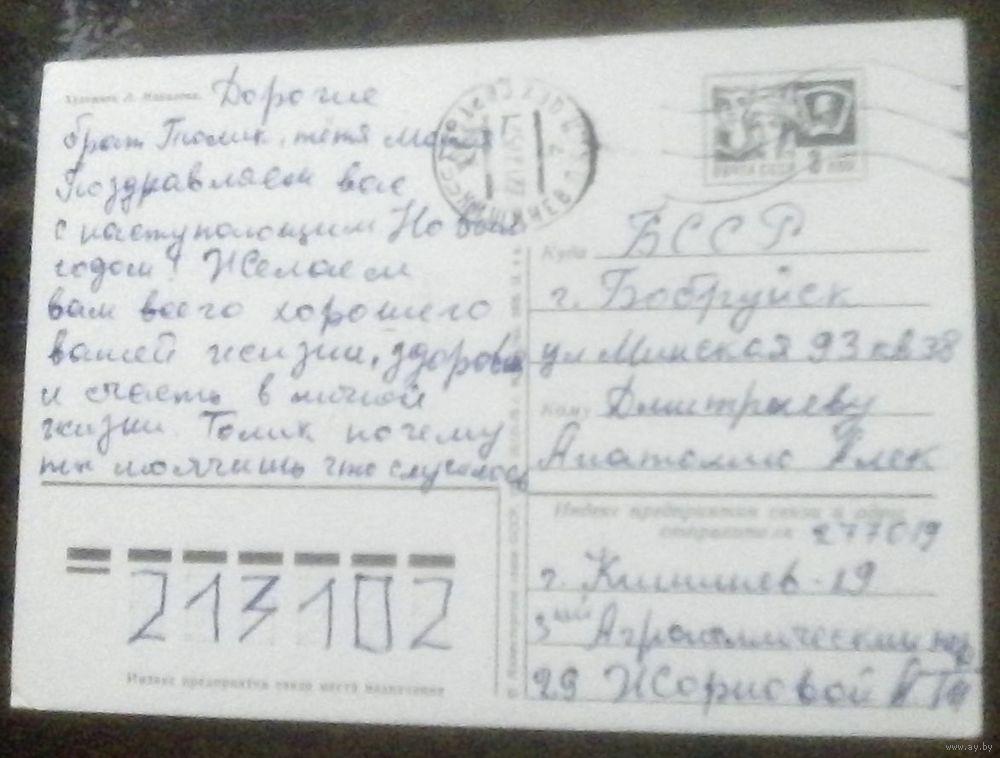 Дорогие
брат Толик, тётя Мария
Поздравляем вас
с наступающим Новым
годом! Желаем
вам всего хорошего
вашей жизни, здоровья
и счастья в личной
жизни. Толик почему
ты молчишь что случилось
ПОЧТА СССР
Куда БССР
г. Бобруйск
ул Минская 93 кв 38
Кому Дмитриеву
Анатолию Алек
Индекс предприятия связи и адрес
отправителя 277019
г. Кишинев - 19
3ий Агрономический пер
29 Жорновой
213102
Индекс предприятия связи места назначения
www.ay.by